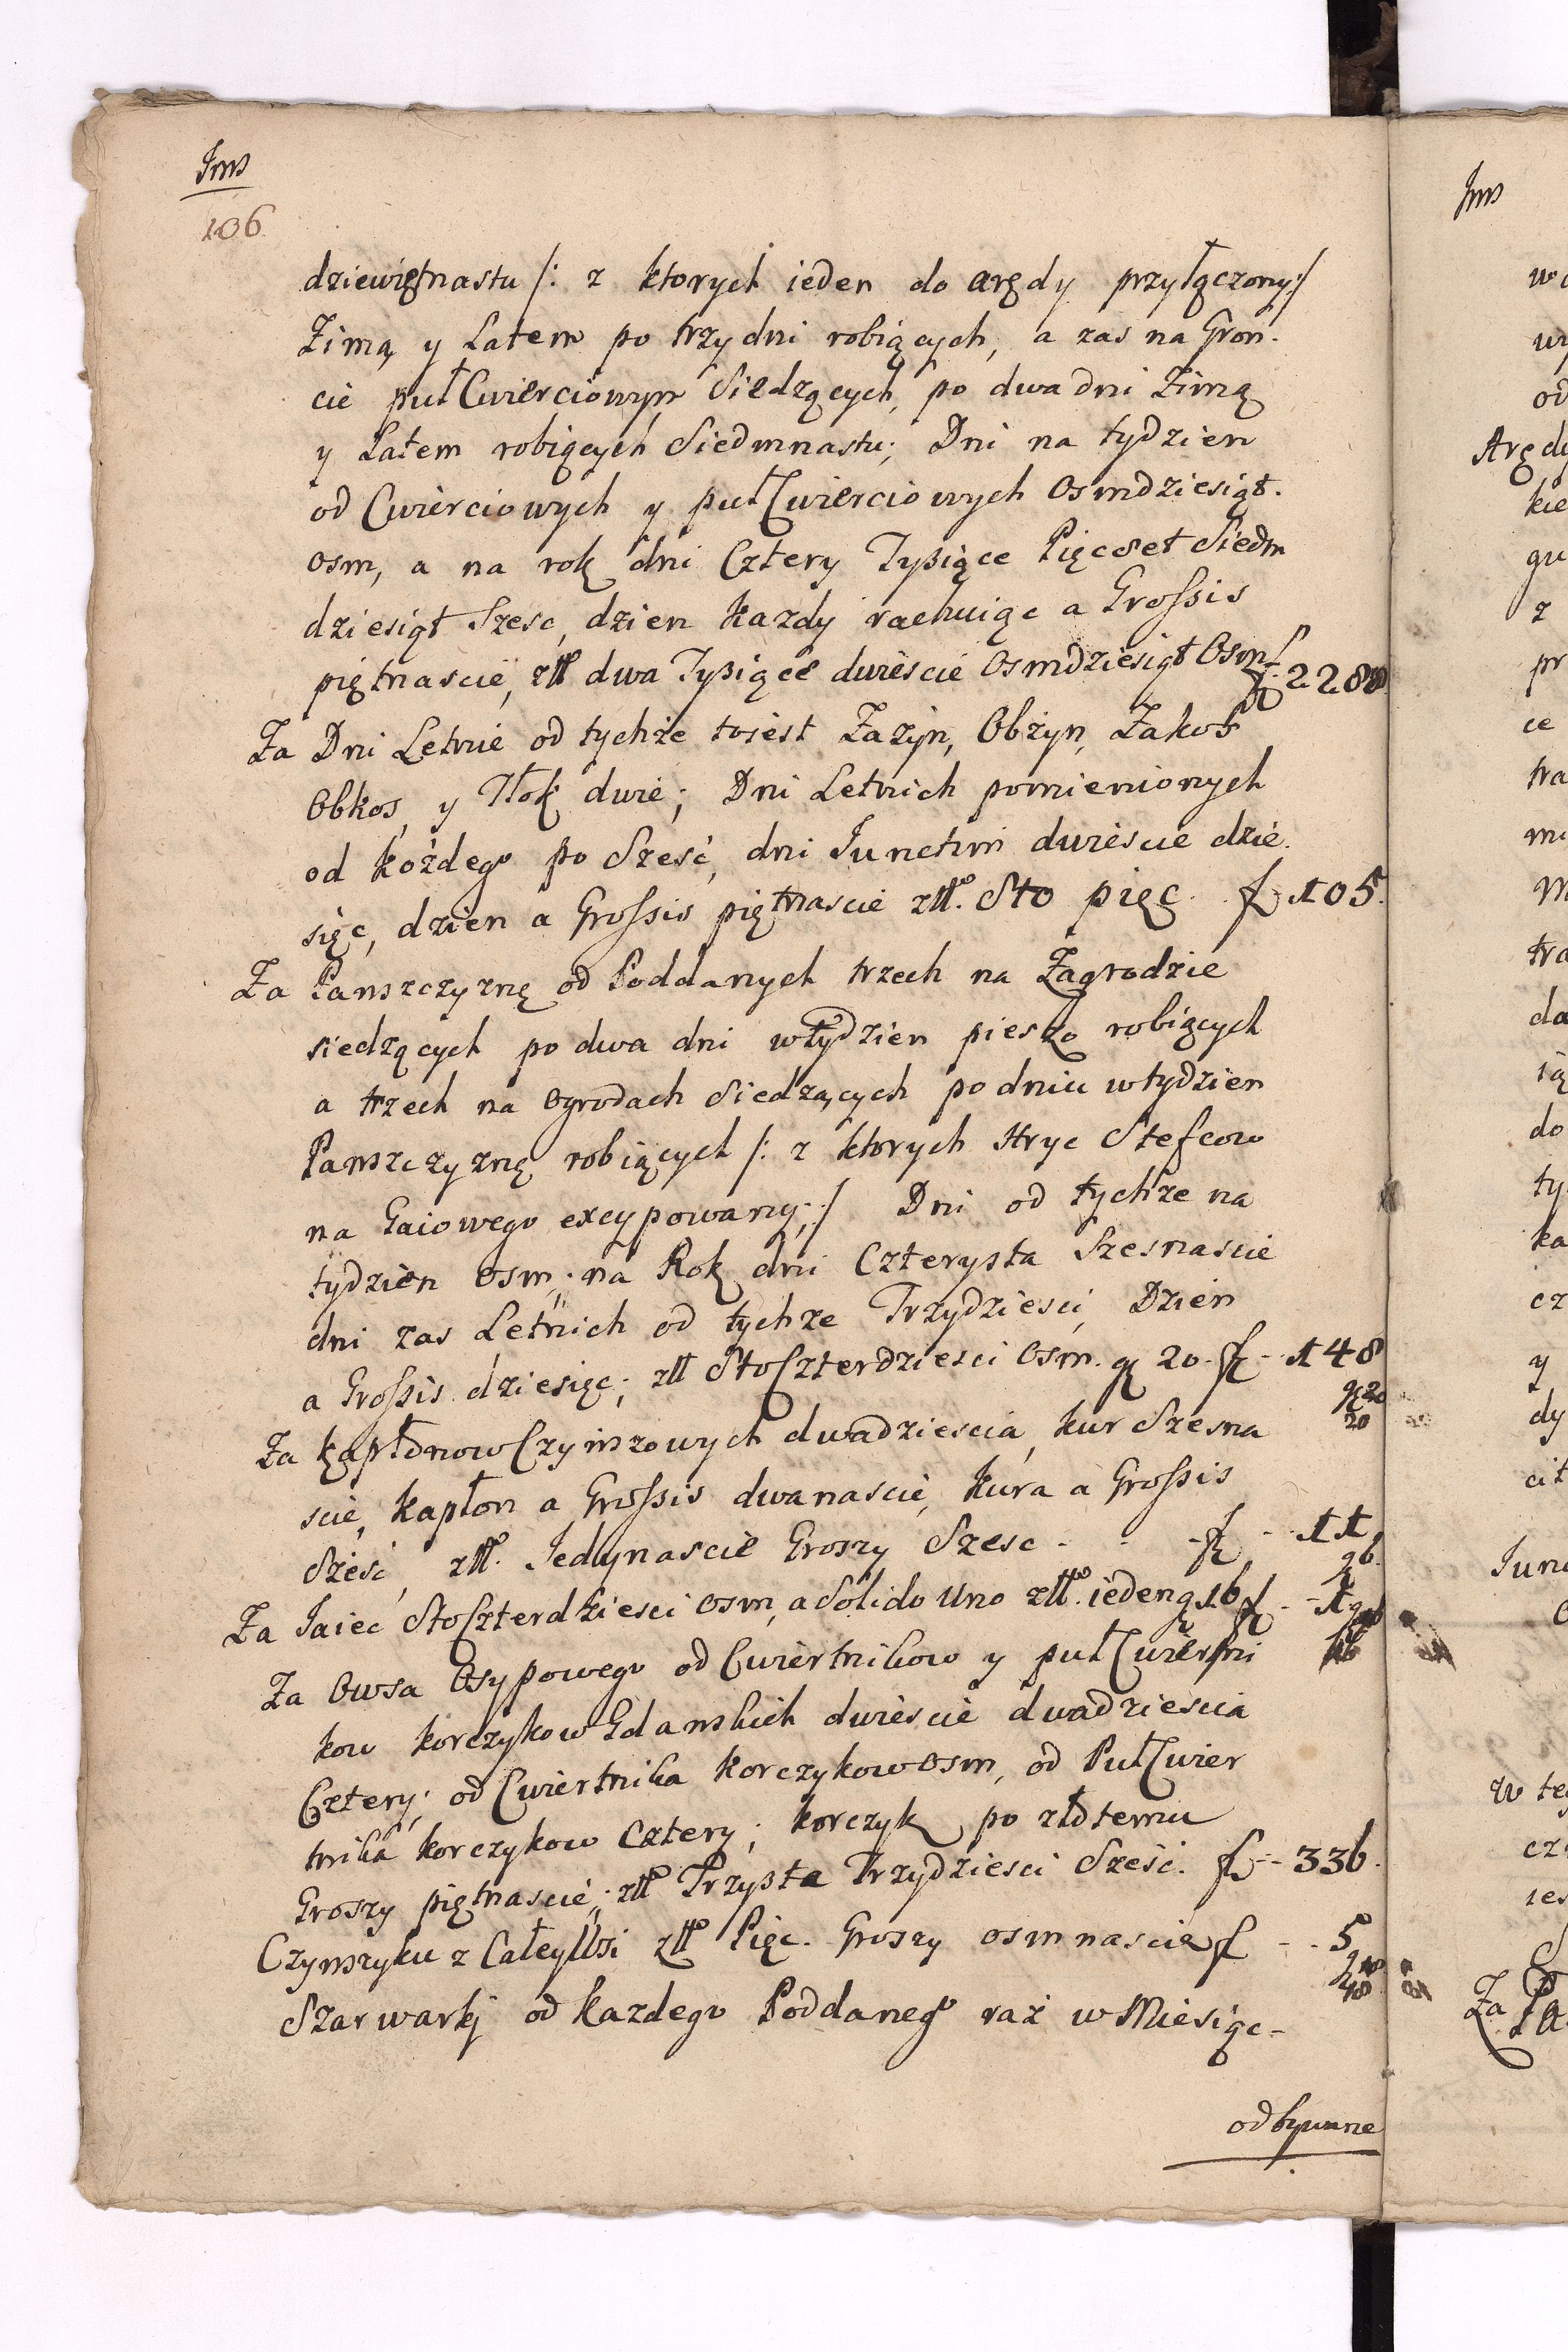 Jms
106
dziewiętnastu /: z ktorych ieden do arędy przyłączony:/
Zimą y Latem po trzy dni robiących, a zas na Gron-
cie puł Cwierciowym Siedzących, po dwa dni Zimą
y Latem robiących Siedmnastu; Dni na tydzien
od Cwierciowych y puł Cwierciowych Osmdziesiąt.
osm, a na rok dni Cztery Tysiące Pięcset Siedm
dziesiąt Szesc, dzien kazdy rachuiąc a Grossis
piętnascie, złł dwa Tysiące dwiescie Osmdziesiąt Osm f 2288
Za Dni Letnie od tychże toiest Zażyn, Obżyn, Zakos
Obkos, y Tłok dwie; Dni Letnich pomienionych
od kożdego po Sześć, dni Junctim dwiescie dzie-
sięc, dzien a Grossis piętnascie złł. Sto pięc. f 105.
Za Panszczyznę od Poddanych trzech na Zagrodzie
siedzących po dwa dni w tydzien pieszo robiących
a trzech na ogrodach Siedzących po dniu w tydzien
Panszczyznę robiących /: z ktorych Hryc Stefcow
na Gaiowego excypowany:/ Dni od tychże na
tydzien osm, na Rok dni Czterysta Szesnascie
dni zas Letnich od tychze Trzydziesci, Dzien
a Grossis dziesięc; złł Sto Czterdziesci Osm. g 20. f - 148
g 20
20
Za kapłonow Czynszowych dwadziescia, kur Szesna
scie, kapłon a Grossis dwanascie, kura a Grossis
Sześć, złł. Jedynascie Groszy Szesc - - f - 11,
g 6.
Za Jaiec Sto Czterdziesci osm, a Solido Uno złł. ieden g 16 f - 1 g
16
Za Owsa Osypowego od Cwiertnikow y puł Cwiertni
kow korczykow Gdanskich dwiescie dwadziescia
Cztery; od Cwiertnika korczykow osm, od Puł Cwier
tnika korczykow Cztery; korczyk po złotemu
Groszy piętnascie; złł Trzysta Trzydziesci Sześć. f - 336.
Czynszyku z Całey Wsi złł Pięc. Groszy osmnascie f - 5
g 18
18
Szarwarki od kazdego Poddanego raz w Miesiąc -
odbywane
Jms
Arędy
kie
z
pr
ce
tra
da
do
ty
ka
cz
y
dy
cit
Junc
w te
ies
Za Pa